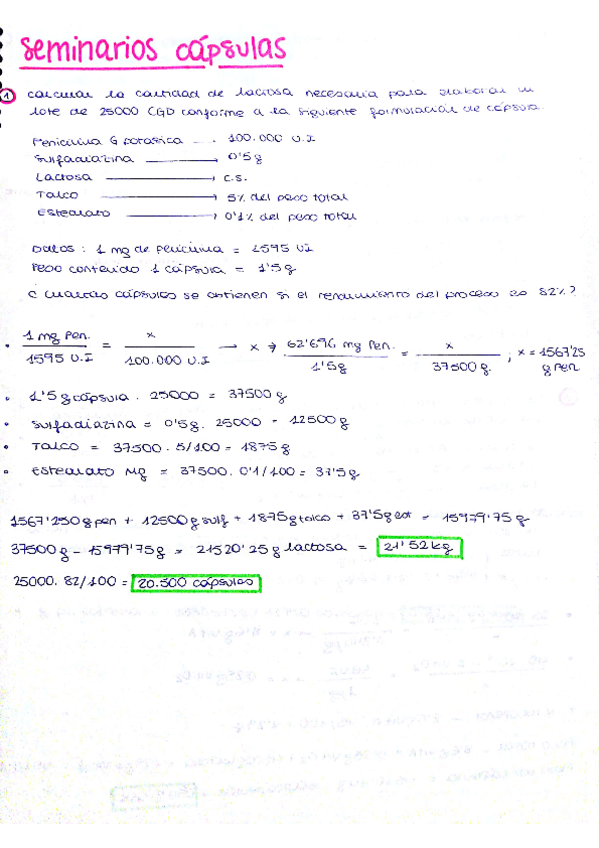 seminarios cápsulas
① calcular la cantidad de lactosa necesaria para elaborar un
lote de 25000 CGD conforme a la siguiente formulación de cápsula.
Penicilina G potásica ... 100.000 U.I
Sulfadiazina → 0'5g
Lactosa → c.s.
Talco → 5% del peso total
Estearato → 0'1% del peso total
Datos: 1 mg de Penicilina = 1595 UI
Peso contenido 1 cápsula = 1'5g
¿Cuántas cápsulas se obtienen si el rendimiento del proceso es 82%?
• 1 mg Pen. / 1595 U.I = x / 100.000 U.I → x ⇒ 62'696 mg Pen. / 1'5g = x / 37500 g. ; x = 1567'25 g Pen
• 1'5 g cápsula . 25000 = 37500 g
• Sulfadiazina = 0'5g. 25000 = 12500g
• Talco = 37500. 5/100 = 1875g
• Estearato Mg = 37500. 0'1/100 = 37'5g
1567'250g pen + 12500g sulf + 1875g talco + 37'5g est = 15979'75 g
37500g - 15979'75g = 21520'25g lactosa = 21'52 kg
25000. 82/100 = 20.500 cápsulas